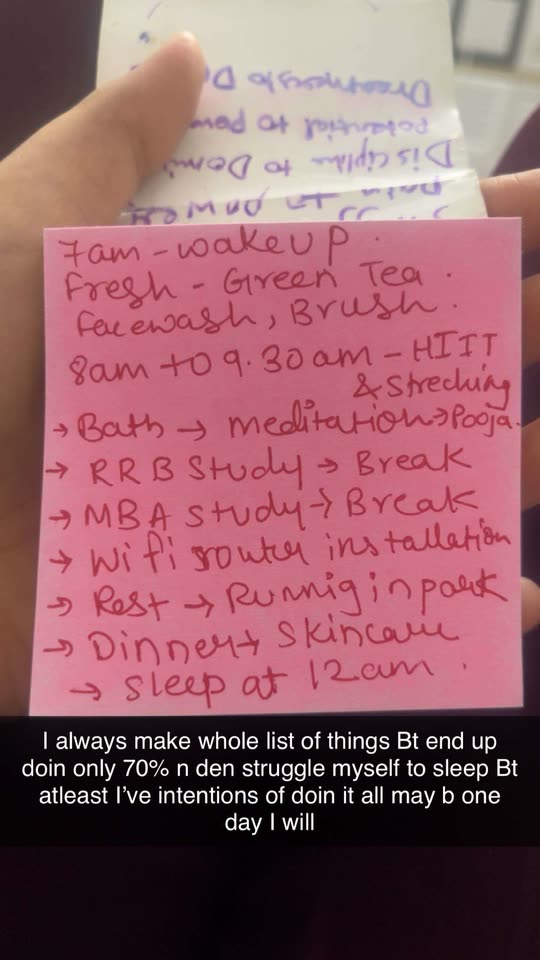 Dreamers to D
potential to pow
Discipline to Domi
Pain to power
7am - wakeup.
Fresh - Green Tea.
Facewash, Brush.
8am to 9.30am - HIIT
& Streching
→ Bath → meditation → Pooja.
→ RRB Study → Break
→ MBA study → Break
→ Wifi router installation
→ Rest → Runnig in park
→ Dinner → Skincare
→ Sleep at 12am.
I always make whole list of things Bt end up
doin only 70% n den struggle myself to sleep Bt
atleast I've intentions of doin it all may b one
day I will